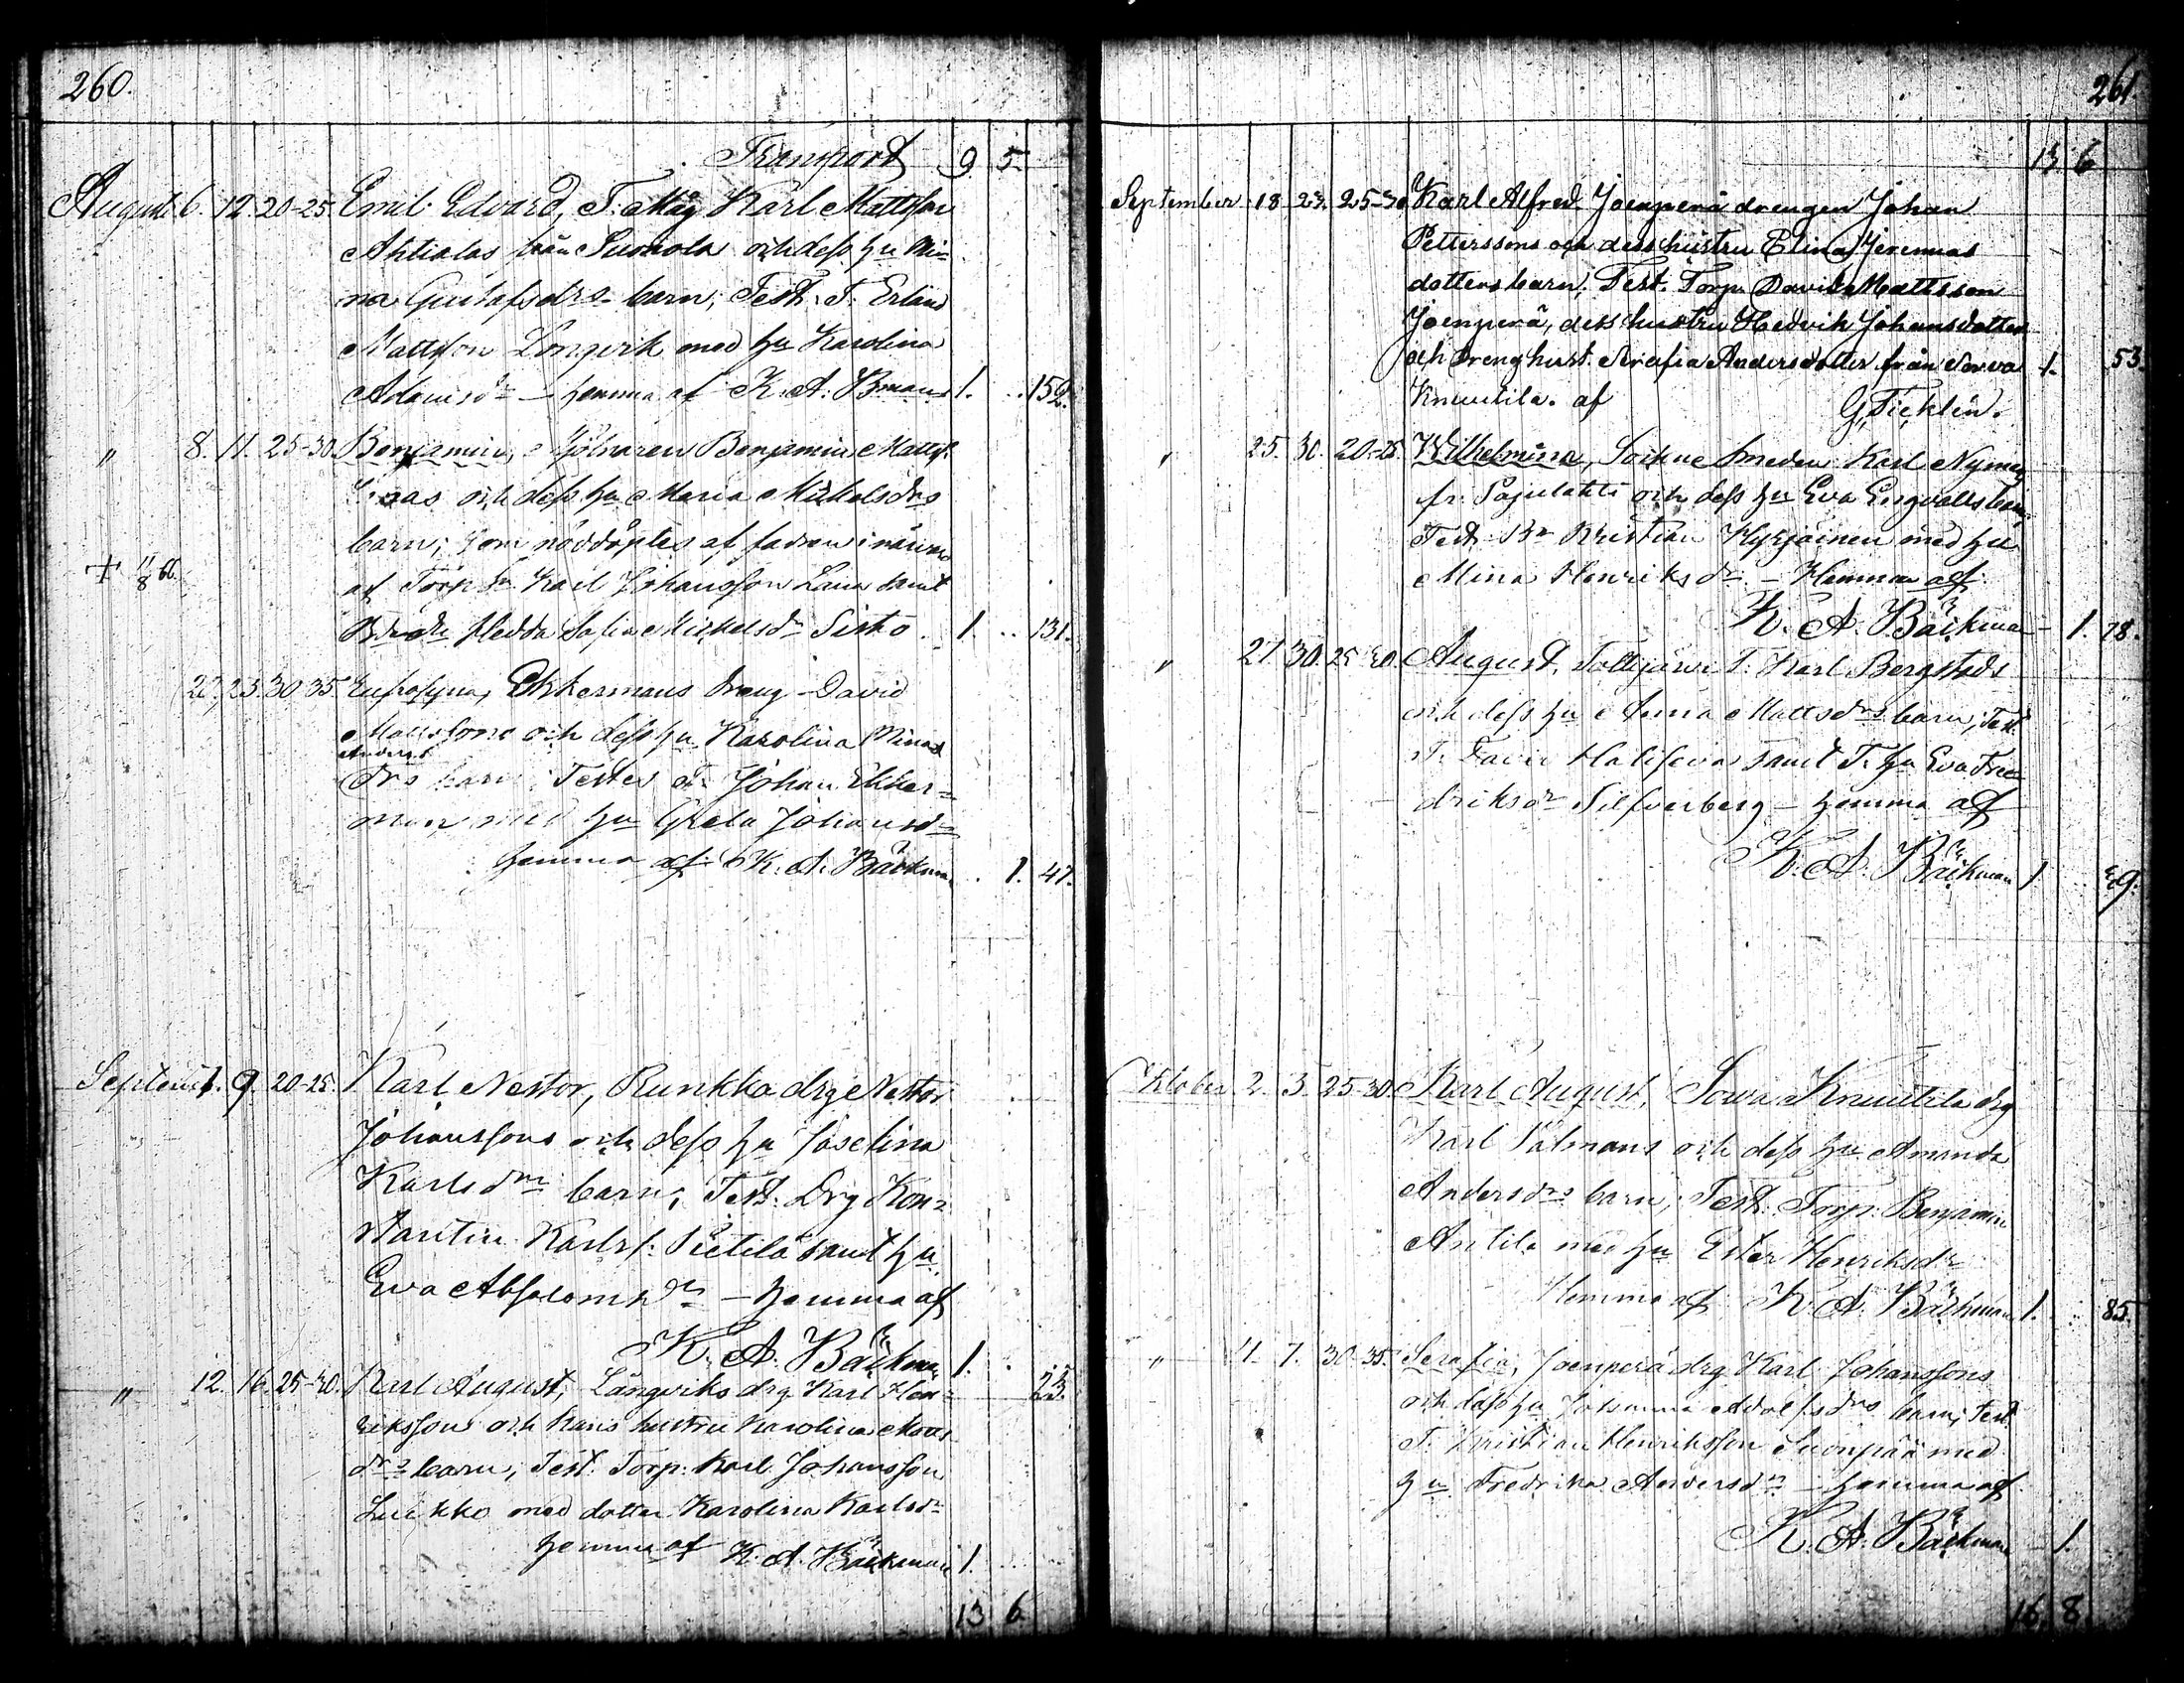 260.
Transport 9 5
August 6. 12. 20-25. Emil Edvard, T. Måg Karl Mattsson
Ahtialas från Suonola och dess hu Mi=
na Gustafsdrs barn; Test. T. Erland
Mattsson Longvik med hu Karolina
Adamsdr — hemma af K. A. Bman 1. .. 152.
" 8. 11. 25-30. Benjamin, Mjölnaren Benjamin Matts.
och dess hu Maria Mickelsdrs
barn; som nöddöptes af fadren i närvaro
+ 11/8 66.
af Torp Karl Johansson Laura samt
Hedda Sofia Mickelsdr Sisto 1. .. 131.
22, 23. 30 35 Eufrosyna, Ekkermans dreng David
Mattssons och dess hu Karolina
Anders
drs barn; Testes T. Johan Ekker=
man med hu Greta Johansdr
hemma af K. A. Bäckman . 1. 47.
Septemb 1. 9. 20-25. Karl Nestor, Runkka drg Nestor
Johanssons och dess hu Joselina
Karlsdrs barn; Test. Drg Kon=
stantin Karlsf. Pietilä samt hu
Eva Absalomsdr — hemma af
K. A. Bäckman 1.
" 12. 16. 25-30. Karl August, Långviks drg Karl Hen= 23.
rikssons och hans hustru Karolina
drs barn; Test. Torp. Karl Johansson
Luikko med dotter Karolina Karlsdr
hemma af K. A. Bäckman 1.
13 6.
261.
13 6
September 18 23. 25-30 Karl Alfred Joenperä drengen Johan
Petterssons och dess hustru Elina Jeremias
dotters barn; Test. Torp. David Mattsson
Joenperä, dess hustru Hedvik Johansdotter
och dreng hust. Serafia Andersdotter från Sorva 1. 53.
Knuutila. af G. Ticklén.
" 25. 30. 20-25. Wilhelmina, Sockne Smeden Karl Nyman
fr. Pajulahti och dess hu Eva Engvalls barn;
Test. Br Kristian Hykjäinen med hu
Mina Henriksdr — Hemma af
K. A. Bäckman — 1. 78.
" 27 30. 25 30. August, T. Karl Bergsteds
och dess hu Anna Mattsdrs barn; Test.
T. David samt T. hu Eva Fre
driksdr Silfverberg — hemma af
K. A. Bäckman 1 29.
Oktober 2. 3. 25-30. Karl August, Sorva Knuutila drg
Karl Palmans och dess hu Amanda
Andersdrs barn; Test. Torp. Benjamin
Antila med hu Ester Henriksdr
Hemma af K. A. Bäckman 1. .. 85.
" 4. 7. 30. 35. Serafia, Joenperä drg Karl Johanssons
och dess hu Johanna Adolfsdrs barn; Test.
T. Kristian Henriksson Suonpää med
hu Fredrika Andersdr — hemma af
K. A. Bäckman — 1.
16. 8.